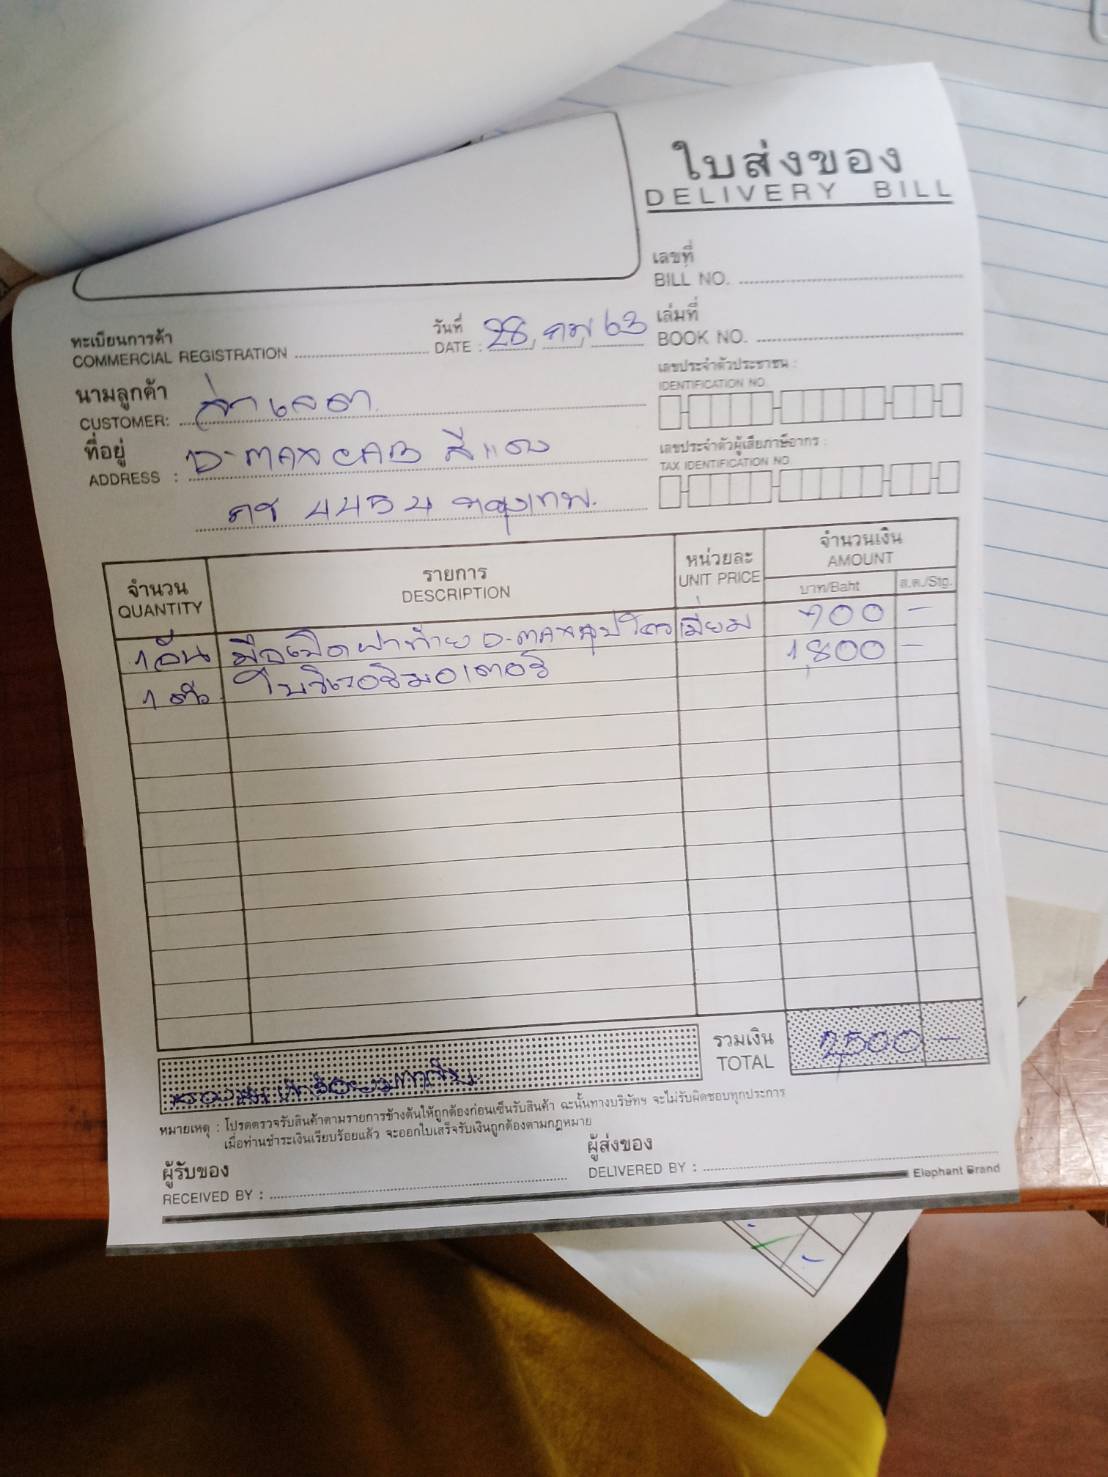 ใบส่งของ
DELIVERY BILL
เลขที่
BILL NO.
ทะเบียนการค้า
COMMERCIAL REGISTRATION
วันที่
DATE : 28 กพ 63
เล่มที่
BOOK NO.
นามลูกค้า
CUSTOMER:
เลขประจำตัวประชาชน :
IDENTIFICATION NO.
ที่อยู่
ADDRESS : D-MAX CAB สีแดง
4454 กรุงเทพ.
เลขประจำตัวผู้เสียภาษีอากร :
TAX IDENTIFICATION NO.
จำนวน
QUANTITY
รายการ
DESCRIPTION
หน่วยละ
UNIT PRICE
จำนวนเงิน
AMOUNT
บาท/Baht
ส.ต./Stg.
1 อัน มือเปิดฝาท้าย D-MAX 700 -
1 ตัว 1,800 -
รวมเงิน
TOTAL
2,500 -
หมายเหตุ : โปรดตรวจรับสินค้าตามรายการข้างต้นให้ถูกต้องก่อนเซ็นรับสินค้า ฉะนั้นทางบริษัทฯ จะไม่รับผิดชอบทุกประการ
เมื่อท่านชำระเงินเรียบร้อยแล้ว จะออกใบเสร็จรับเงินถูกต้องตามกฎหมาย
ผู้รับของ
RECEIVED BY :
ผู้ส่งของ
DELIVERED BY :
Elephant Brand